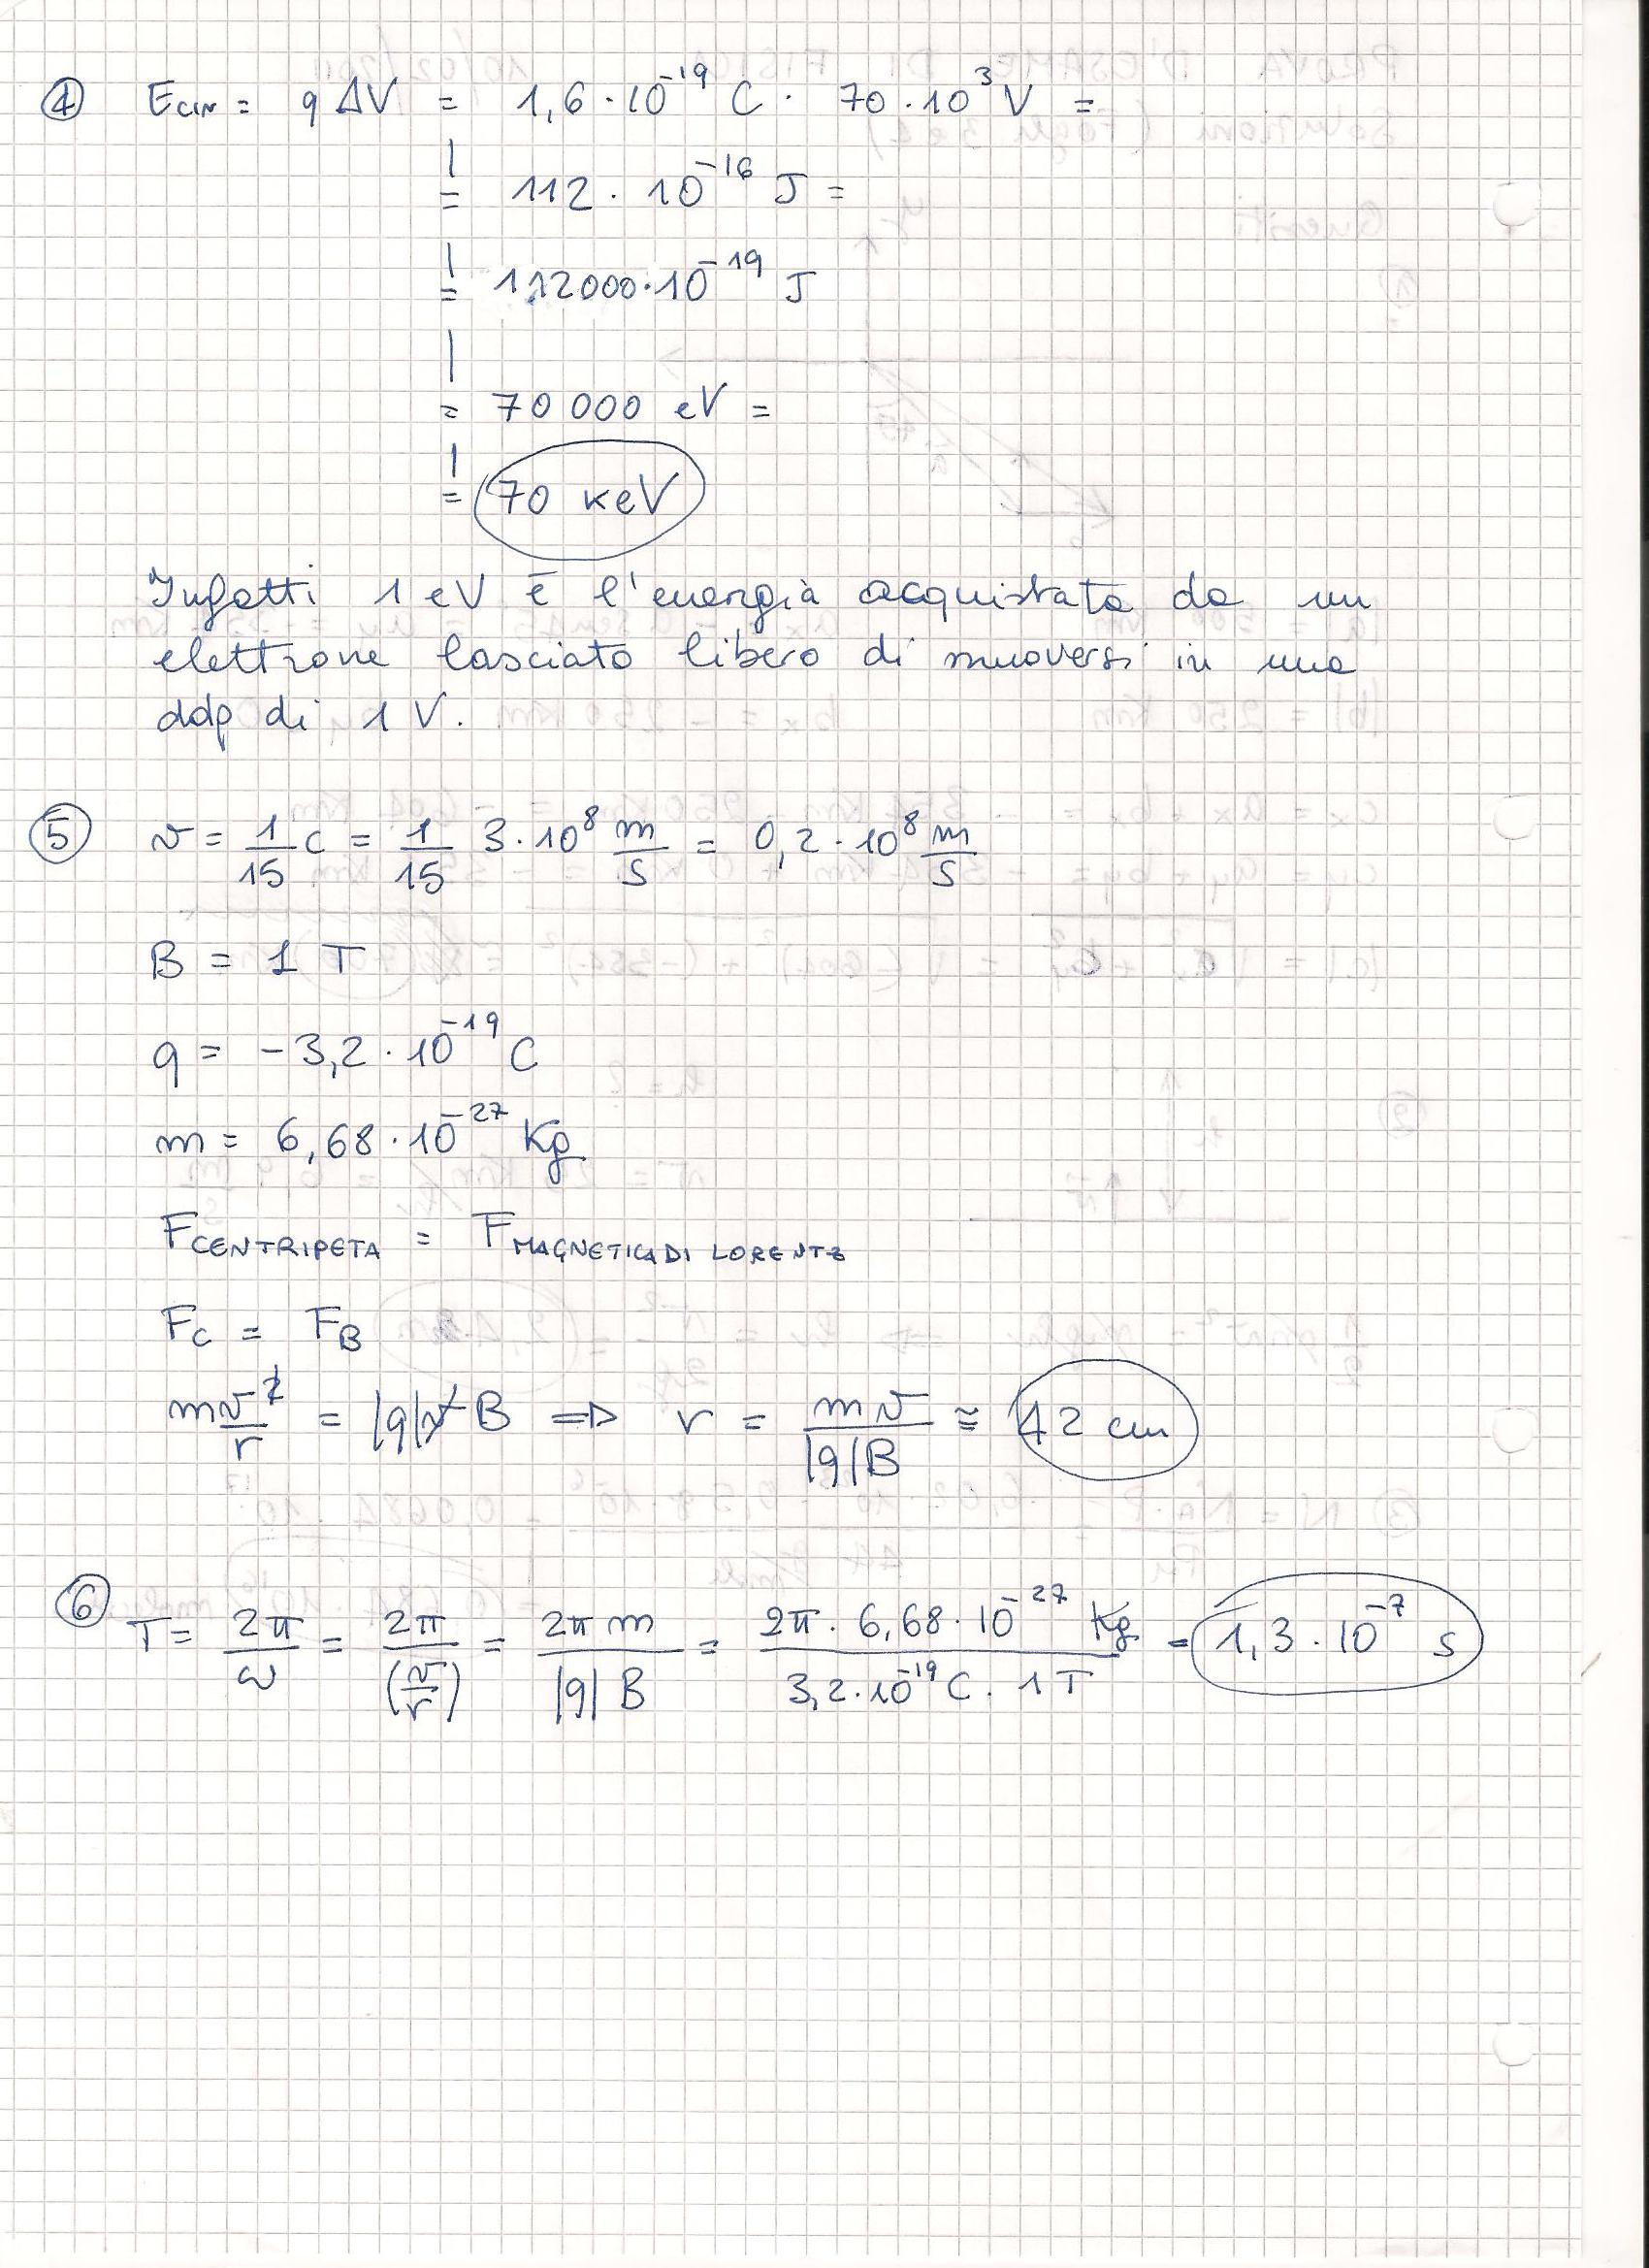 ④ Ecin = q ΔV = 1,6 · 10⁻¹⁹ C · 70 · 10³ V =
= 112 · 10⁻¹⁶ J =
= 112000 · 10⁻¹⁹ J
= 70 000 eV =
= 70 keV
Infatti 1 eV è l'energia acquistata da un
elettrone lasciato libero di muoversi in una
ddp di 1 V.
⑤ v = 1/15 c = 1/15 3 · 10⁸ m/s = 0,2 · 10⁸ m/s
B = 1 T
q = -3,2 · 10⁻¹⁹ C
m = 6,68 · 10⁻²⁷ Kg
F CENTRIPETA = F MAGNETICA DI LORENTZ
Fc = FB
mv²/r = |q|vB ⇒ r = mv/|q|B ≅ 42 cm
⑥ T = 2π/ω = 2π/(v/r) = 2π m/|q| B = 2π · 6,68 · 10⁻²⁷ Kg/3,2 · 10⁻¹⁹ C · 1 T = 1,3 · 10⁻⁷ s